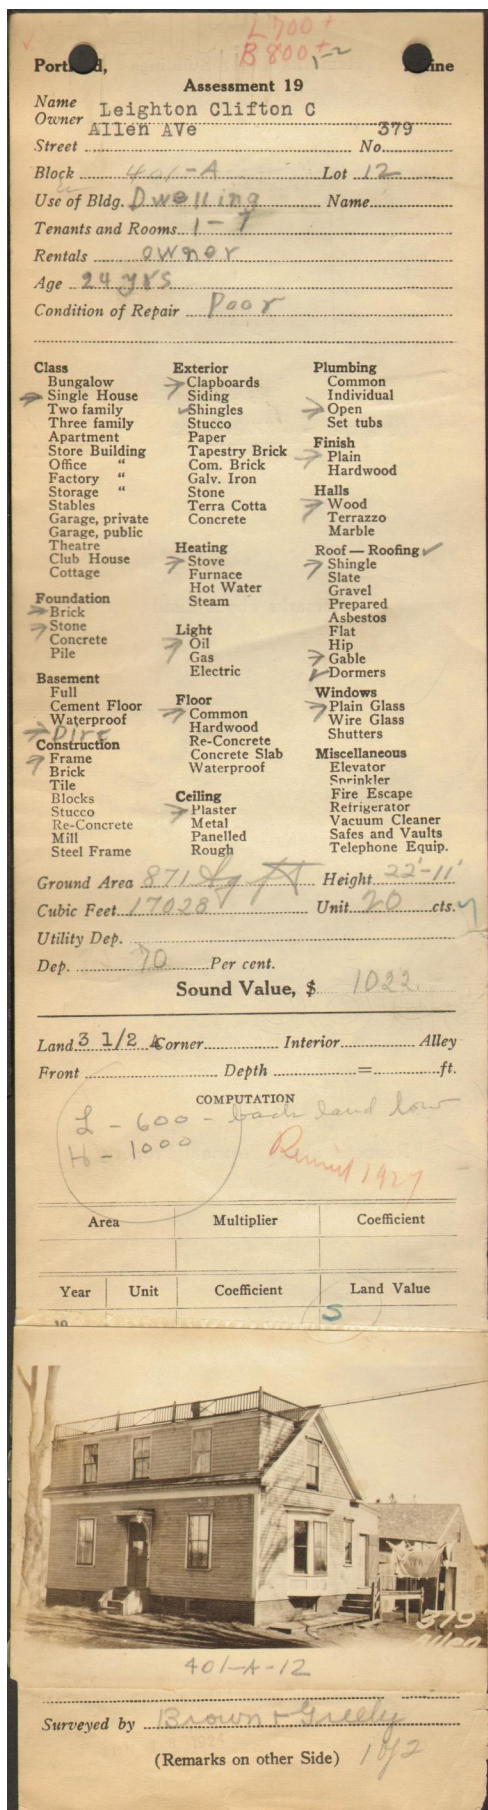 L 700+
B 800+
1-2
Portland, Maine
Assessment 19
Name
Owner Leighton Clifton C
Allen AVe 379
Street No.
Block 401-A Lot 12
Use of Bldg. Dwelling Name
Tenants and Rooms 1-7
Rentals owner
Age 24 yrs
Condition of Repair Poor
Class
Bungalow
Single House
Two family
Three family
Apartment
Store Building
Office "
Factory "
Storage "
Stables
Garage, private
Garage, public
Theatre
Club House
Cottage
Foundation
Brick
Stone
Concrete
Pile
Basement
Full
Cement Floor
Waterproof
Dirt
Construction
Frame
Brick
Tile
Blocks
Stucco
Re-Concrete
Mill
Steel Frame
Exterior
Clapboards
Siding
Shingles
Stucco
Paper
Tapestry Brick
Com. Brick
Galv. Iron
Stone
Terra Cotta
Concrete
Heating
Stove
Furnace
Hot Water
Steam
Light
Oil
Gas
Electric
Floor
Common
Hardwood
Re-Concrete
Concrete Slab
Waterproof
Ceiling
Plaster
Metal
Panelled
Rough
Plumbing
Common
Individual
Open
Set tubs
Finish
Plain
Hardwood
Halls
Wood
Terrazzo
Marble
Roof — Roofing
Shingle
Slate
Gravel
Prepared
Asbestos
Flat
Hip
Gable
Dormers
Windows
Plain Glass
Wire Glass
Shutters
Miscellaneous
Elevator
Sprinkler
Fire Escape
Refrigerator
Vacuum Cleaner
Safes and Vaults
Telephone Equip.
Ground Area 871 Sq ft Height 22'-11'
Cubic Feet 17028 Unit 20 cts.
Utility Dep.
Dep. 70 Per cent.
Sound Value, $ 1022
Land 3 1/2 A Corner Interior Alley
Front Depth = ft.
COMPUTATION
L - 600 - back land low
H - 1000
Revised 1927
Area Multiplier Coefficient
Year Unit Coefficient Land Value
19
S
379
Allen
401-A-12
Surveyed by Brown + Greely
(Remarks on other Side) 1 of 2